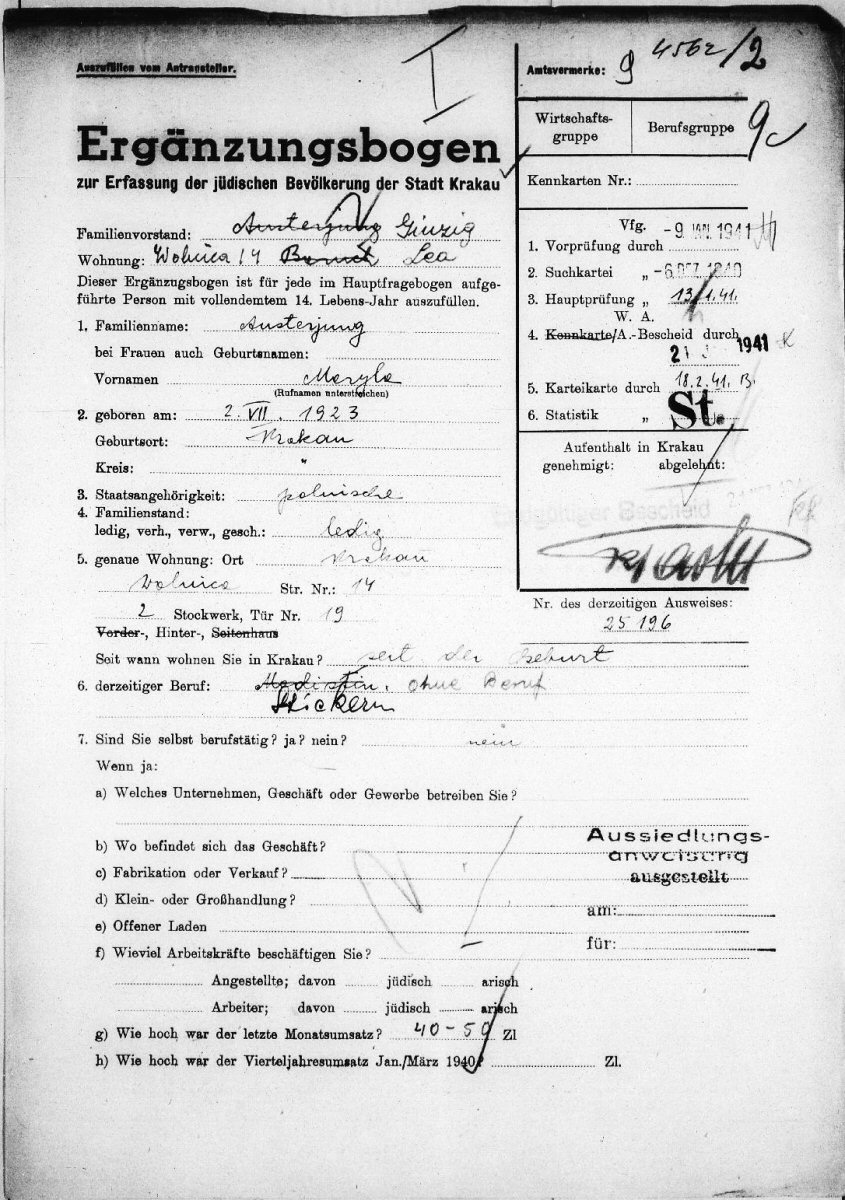 Auszufüllen vom Antragsteller.
I
Ergänzungsbogen
zur Erfassung der jüdischen Bevölkerung der Stadt Krakau
Familienvorstand: Austerjung Ginzig
Wohnung: Wolnica 14 Lea
Dieser Ergänzugsbogen ist für jede im Hauptfragebogen aufge-
führte Person mit vollendemtem 14. Lebens-Jahr auszufüllen.
1. Familienname: Austerjung
bei Frauen auch Geburtsnamen:
Vornamen Maryla
(Rufnamen unterstreichen)
2. geboren am: 2. VII. 1923
Geburtsort: Krakau
Kreis: "
3. Staatsangehörigkeit: polnische
4. Familienstand:
ledig, verh., verw., gesch.: ledig
5. genaue Wohnung: Ort Krakau
Wolnica Str. Nr.: 14
2 Stockwerk, Tür Nr. 19
Vorder-, Hinter-, Seitenhaus
Seit wann wohnen Sie in Krakau? seit der Geburt
6. derzeitiger Beruf: Modistin, ohne Beruf
Stickerin
7. Sind Sie selbst berufstätig? ja? nein? nein
Wenn ja: —
a) Welches Unternehmen, Geschäft oder Gewerbe betreiben Sie?
b) Wo befindet sich das Geschäft?
c) Fabrikation oder Verkauf?
d) Klein- oder Großhandlung?
e) Offener Laden
f) Wieviel Arbeitskräfte beschäftigen Sie?
Angestellte; davon jüdisch arisch
Arbeiter; davon jüdisch arisch
g) Wie hoch war der letzte Monatsumsatz? 40-50 Zl
h) Wie hoch war der Vierteljahresumsatz Jan./März 1940? Zl.
Amtsvermerke: 9 4562/2
Wirtschafts-
gruppe
Berufsgruppe 9c
Kennkarten Nr.:
Vfg. -9 JAN. 1941
1. Vorprüfung durch
2. Suchkartei „ -6 DEZ. 1940
3. Hauptprüfung „ 13/1.41.
W. A.
4. Kennkarte/A.-Bescheid durch
1941
5. Karteikarte durch 18.2.41. B.
6. Statistik „ St.
Aufenthalt in Krakau
genehmigt: abgelehnt:
Endgültiger Bescheid
Nr. des derzeitigen Ausweises:
25 196
Aussiedlungs-
anweisung
ausgestellt
am:
für: